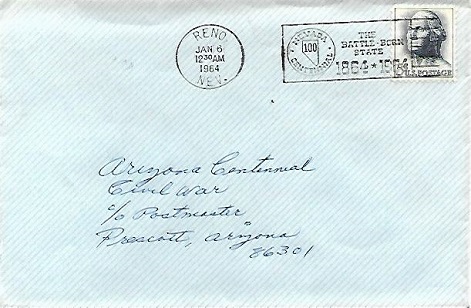 RENO
JAN 6
12 30 AM
1964
NEV.
NEVADA
100
CENTENNIAL
THE
BATTLE-BORN
STATE
1864 ★ 1964
U.S. POSTAGE
Arizona Centennial
Civil War
c/o Postmaster
Prescott, Arizona
86301